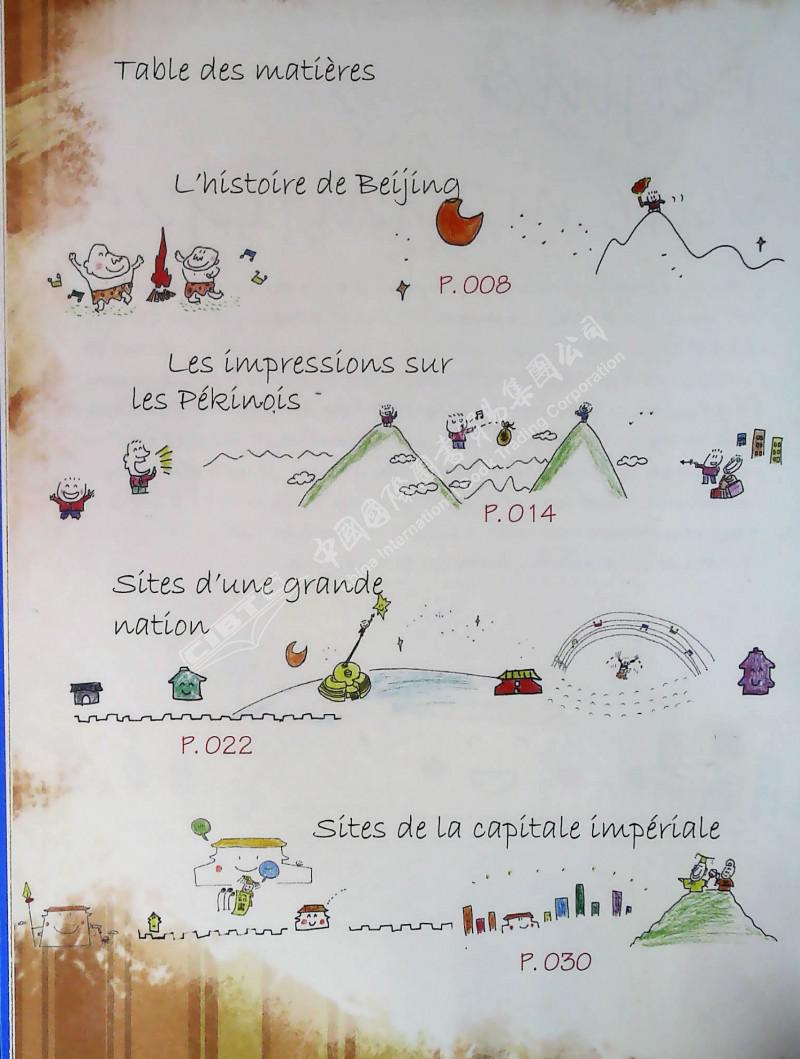 Table des matières
L'histoire de Beijing
P. 008
Les impressions sur
les Pékinois
P. 014
Sites d'une grande
nation
P. 022
Sites de la capitale impériale
P. 030
中國國際圖書貿易集團公司
China International Book Trading Corporation
CIBTC